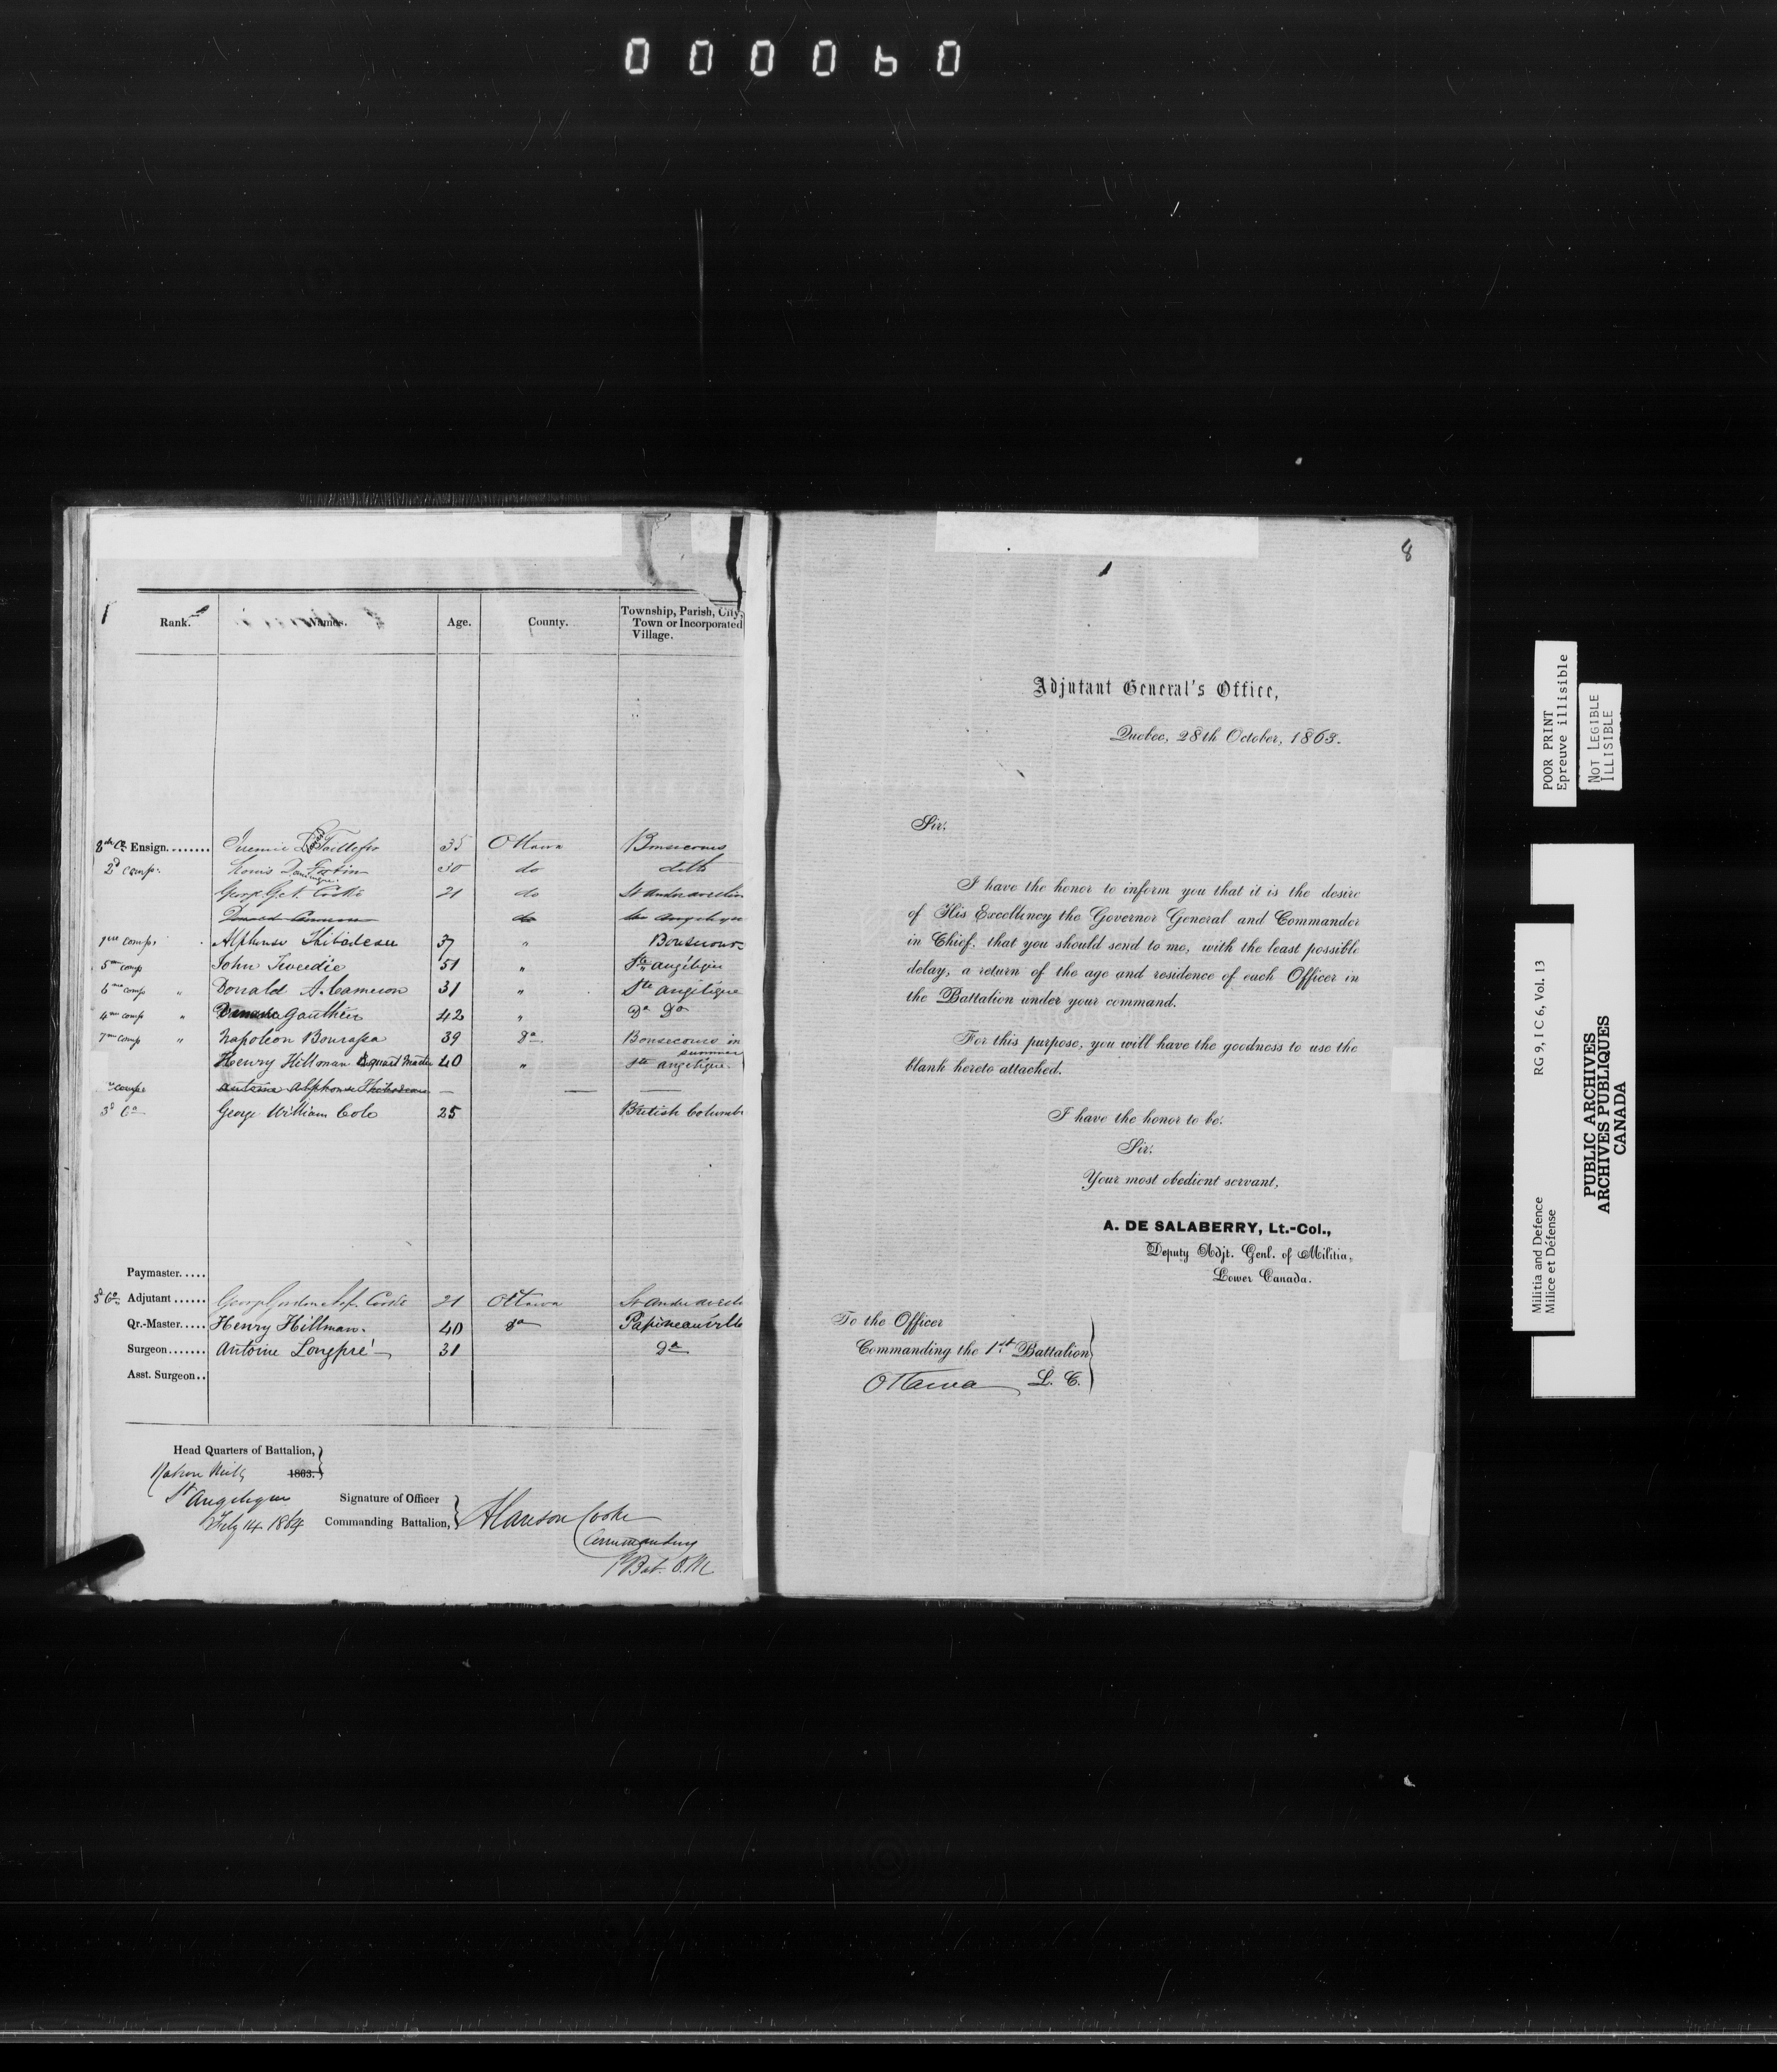 000060
Rank. Names. Age. County. Township, Parish, City, Town or Incorporated Village.
Ensign........ Taillefer 35 Ottawa Bonsecours
2d comp. Louis Fortin 30 do ditto
Geo. G. A. Cooke 21 do St André avellin
Donald Cameron do Ste Angelique
1ere comp. Alphonse Thibodeau 37 " Bonsecours
5me comp John Tweedie 51 " Ste Angélique
6me comp " Donald A. Cameron 31 " Ste Angélique
4me comp " Gauthier 42 " Do Do
7me comp " Napoleon Bourassa 39 Do Bonsecours in summer
Henry Hillman Quart Master 40 " Ste Angélique.
comp Alphonse Thibodeau —
3d Co George William Cole 25 British Columb
Paymaster.....
3d Co Adjutant...... George Gordon Cooke 21 Ottawa St André avelli
Qr.-Master..... Henry Hillman. 40 do Papineauville
Surgeon....... Antoine Longpré 31 Do
Asst. Surgeon..
Head Quarters of Battalion,
Mills 1863.
St Angelique
July 14 1864
Signature of Officer
Commanding Battalion,
Alanson Cooke
Commanding
1 Bat. O.M
8
Adjutant General's Office,
Quebec, 28th October, 1863.
Sir,
I have the honor to inform you that it is the desire
of His Excellency the Governor General and Commander
in Chief, that you should send to me, with the least possible
delay, a return of the age and residence of each Officer in
the Battalion under your command.
For this purpose, you will have the goodness to use the
blank hereto attached.
I have the honor to be,
Sir,
Your most obedient servant,
A. DE SALABERRY, Lt.-Col.,
Deputy Adjt. Genl. of Militia,
Lower Canada.
To the Officer
Commanding the 1st Battalion
Ottawa L. C.
POOR PRINT
Epreuve illisible
NOT LEGIBLE
ILLISIBLE
Militia and Defence
Milice et Défense
RG 9, I C 6, Vol. 13
PUBLIC ARCHIVES
ARCHIVES PUBLIQUES
CANADA